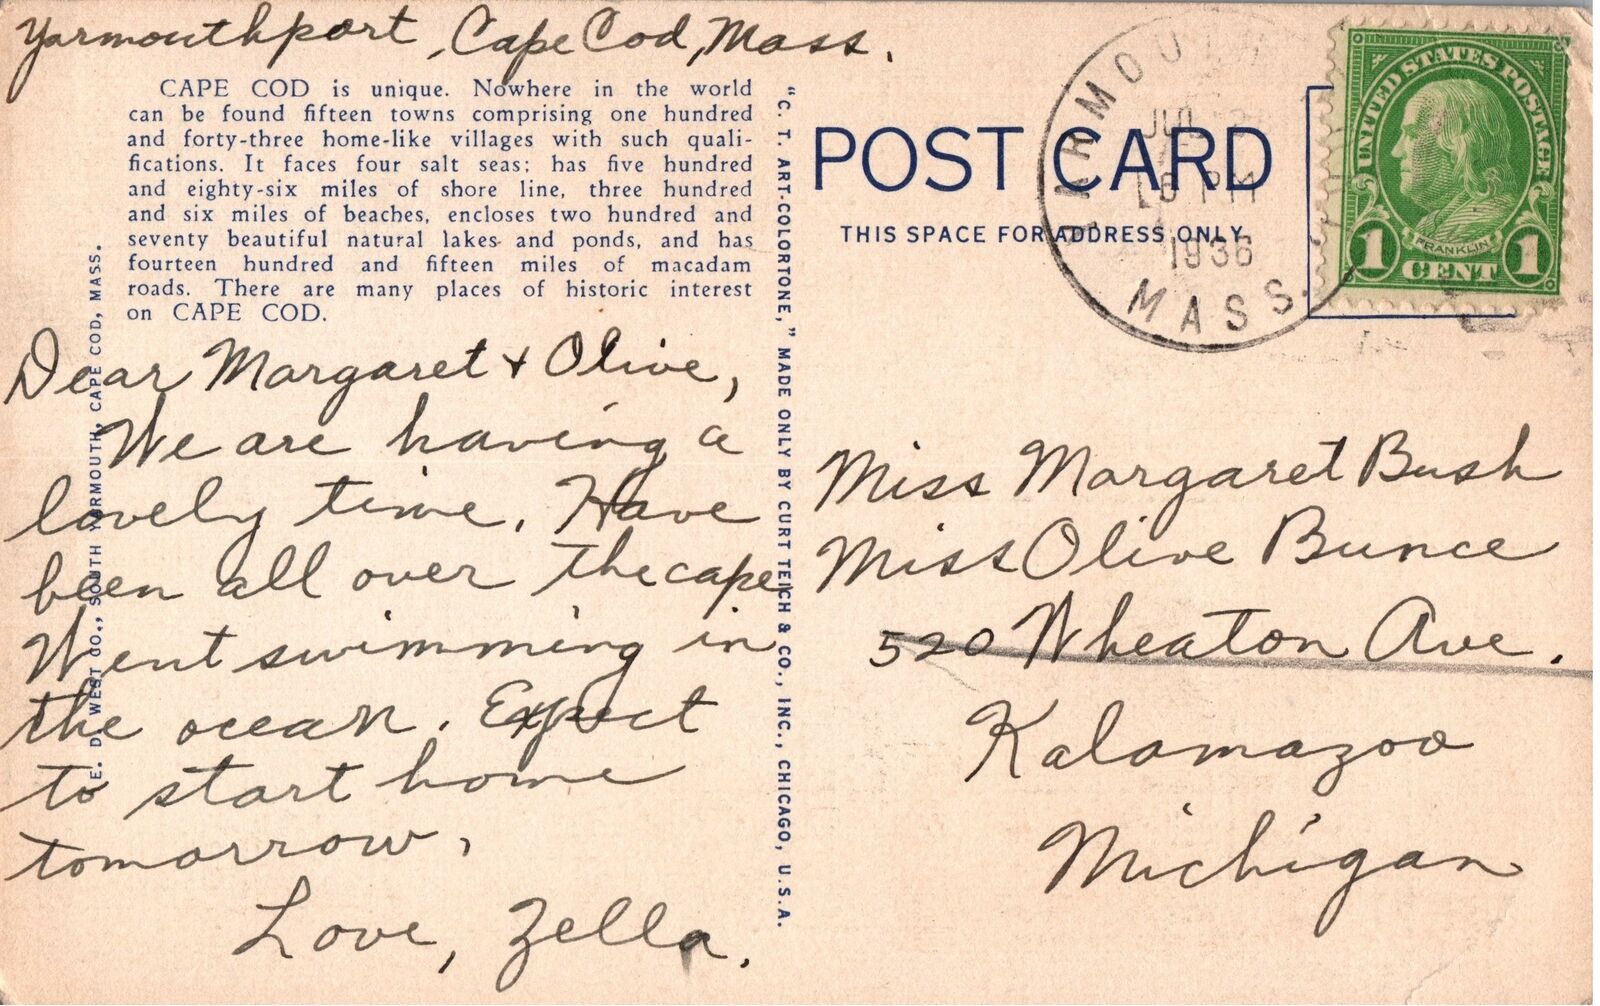 Yarmouthport, Cape Cod, Mass.
CAPE COD is unique. Nowhere in the world
can be found fifteen towns comprising one hundred
and forty-three home-like villages with such quali-
fications. It faces four salt seas; has five hundred
and eighty-six miles of shore line, three hundred
and six miles of beaches, encloses two hundred and
seventy beautiful natural lakes and ponds, and has
fourteen hundred and fifteen miles of macadam
roads. There are many places of historic interest
on CAPE COD.
Dear Margaret & Olive,
We are having a
lovely time. Have
been all over the cape
Went swimming in
the ocean. Expect
to start home
tomorrow.
Love, Zella.
E. D. WEST CO., SOUTH YARMOUTH, CAPE COD, MASS.
"C. T. ART-COLORTONE," MADE ONLY BY CURT TEICH & CO., INC., CHICAGO, U.S.A.
POST CARD
THIS SPACE FOR ADDRESS ONLY
JUL
6 PM
1936
MASS.
UNITED STATES POSTAGE
FRANKLIN
1 CENT 1
Miss Margaret Bush
Miss Olive Bunce
520 Wheaton Ave.
Kalamazoo
Michigan